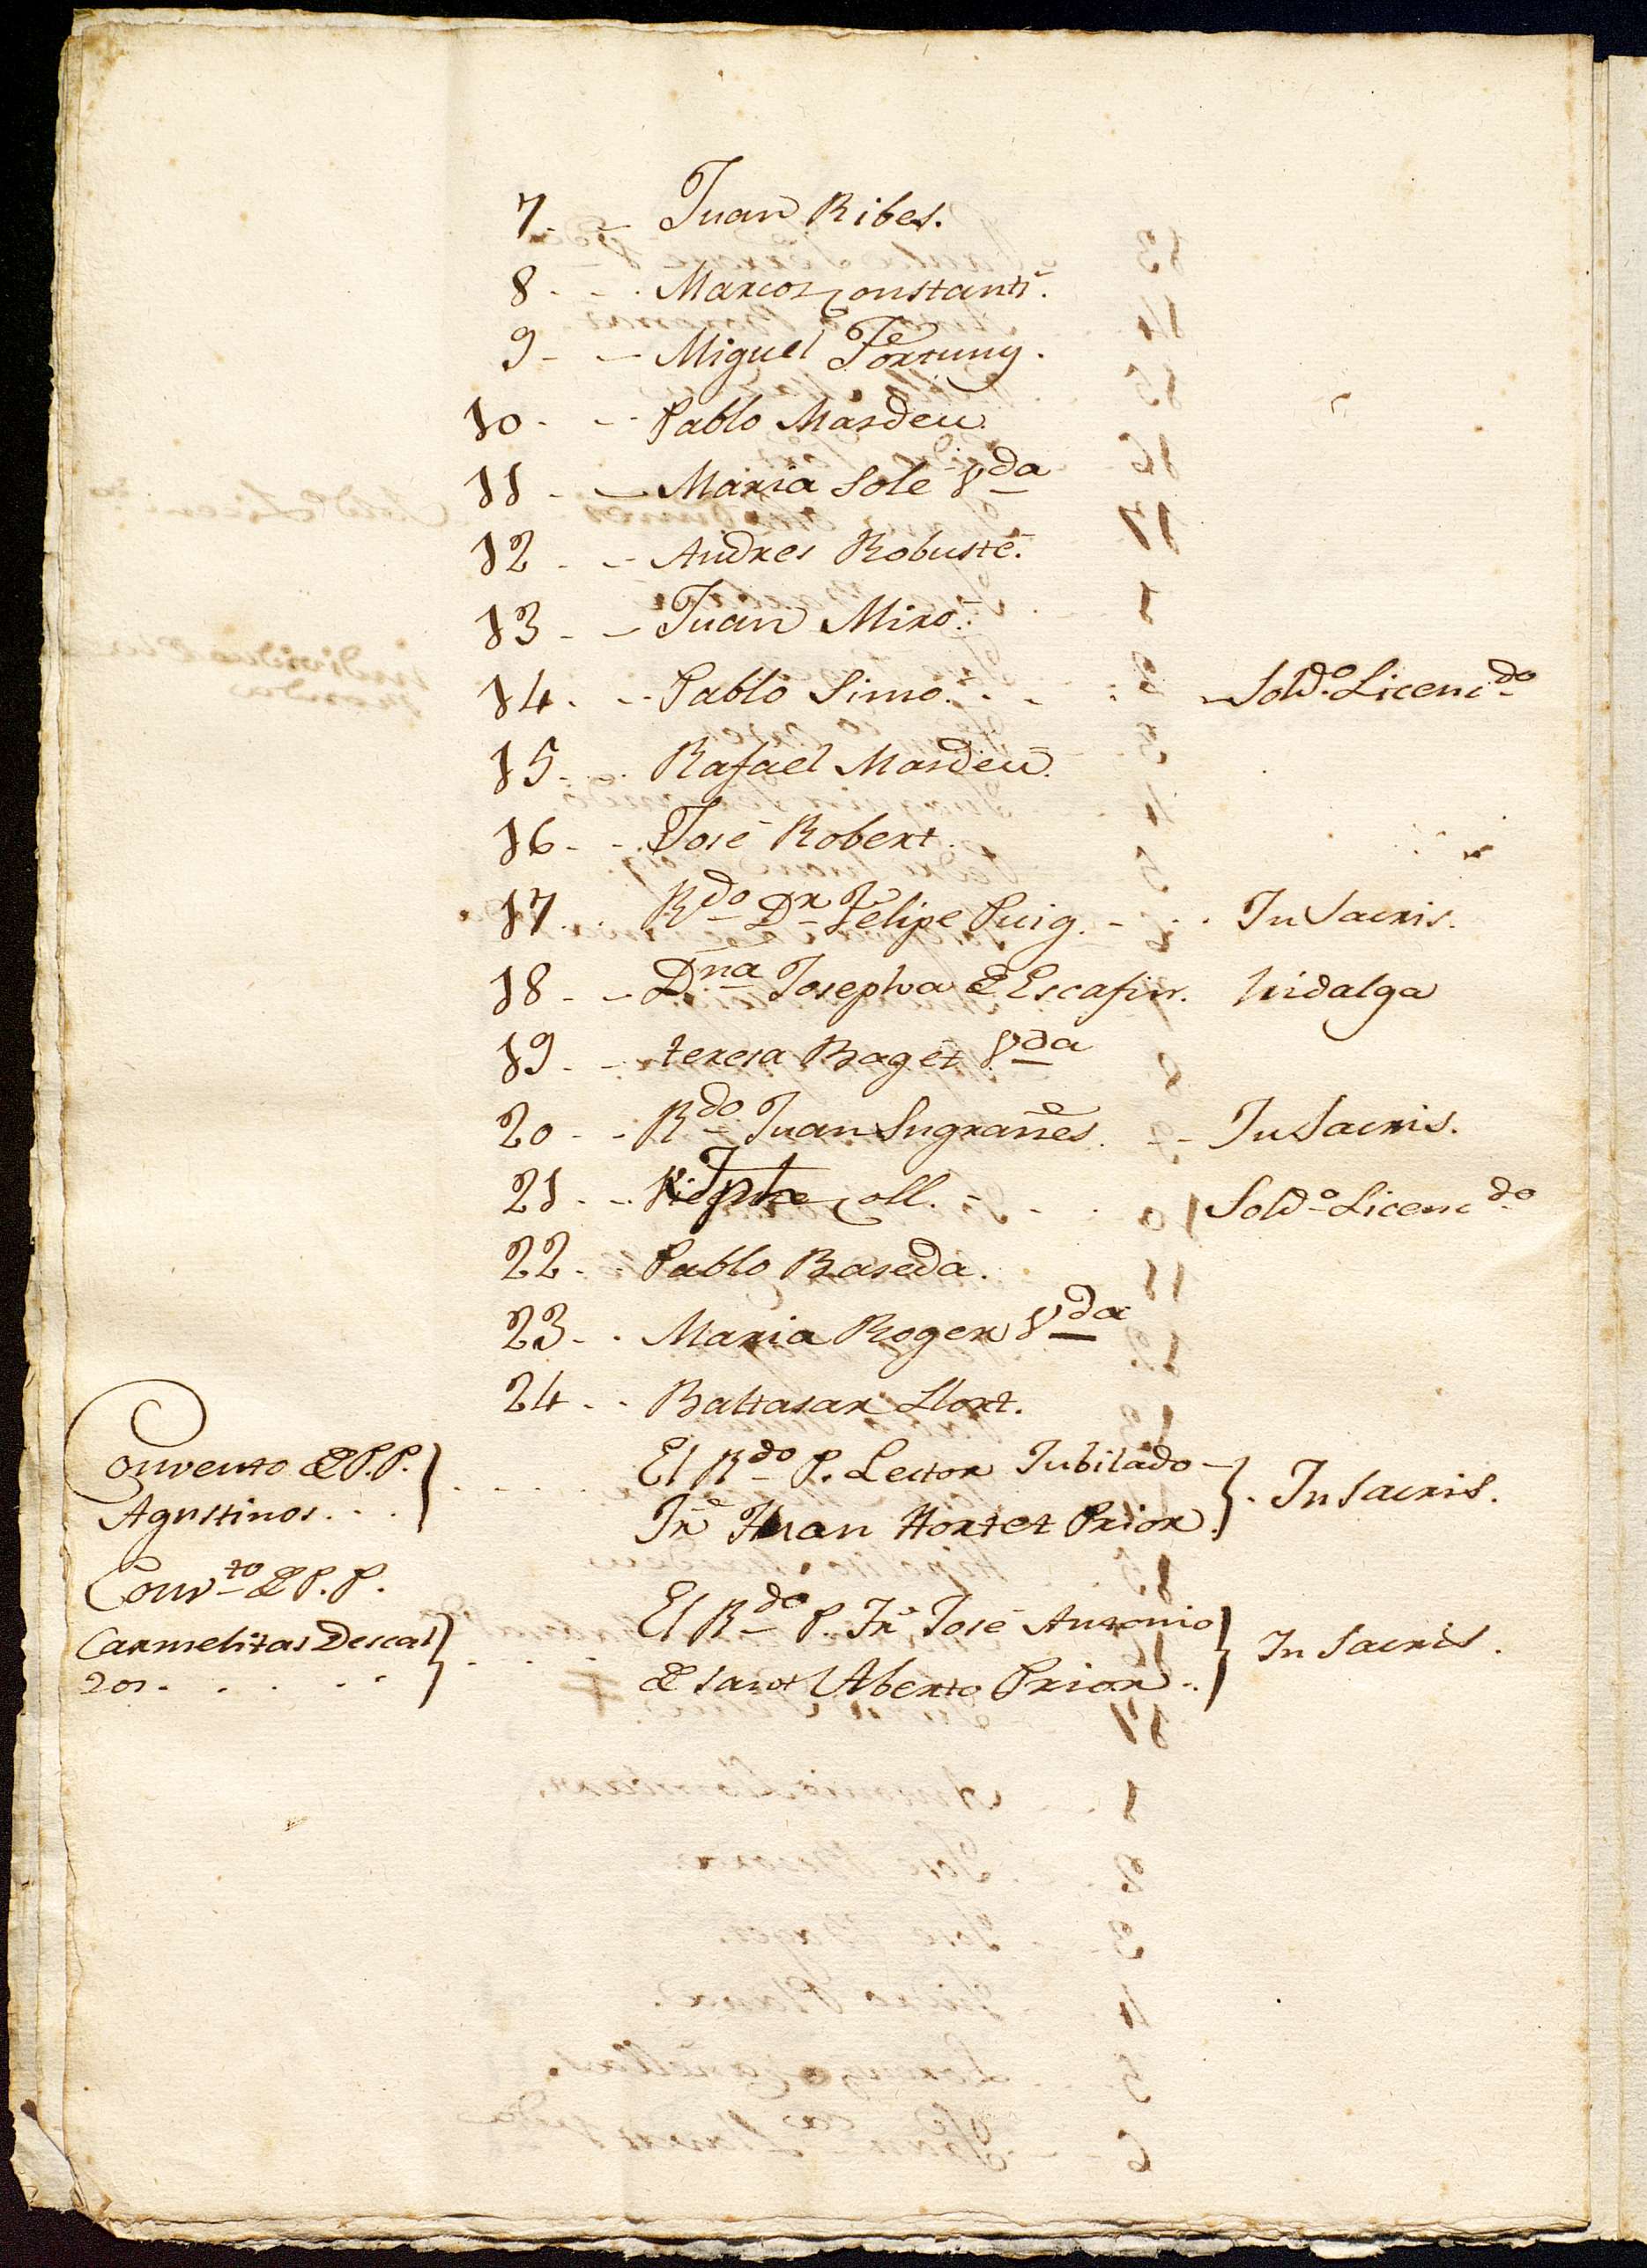 7. - Juan Ribes.
8. - . Marcos Constantí.
9 - - Miguel Fortuny.
10 - - Pablo Masdeu.
11 - - Maria Solé V.da
12 - - Andres Robusté.
13 - - Juan Miró.
14. - - Pablo Simó. - - - Sold.o Licenc.do
15 - . Rafael Masdeu.
16 - - José Robert.
17 . . R.do D.r Felipe Puig. - . . In Sacris.
18 - - D.na Josepha de Escafin. hidalga
19 - - teresa Baget V.da
20 - - R.do Juan Sugrañes. - - In Sacris.
21 - - Jph Coll. - . . Sold.o Licenc.do
22 - - Pablo Baseda.
23 - . Maria Roger V.da
24 - . Baltasar Llort.
Convento de P.P. } . . . . . El R.do P. Lector Jubilado - } . In Sacris.
Agustinos. . . . Fr. Juan Hortet Prior.
Conv.to de P.P.
Carmelitas Descal } . . . . El R.do P. Fr. José Antonio } In Sacris.
zos. . . . . . de sant Alberto Prior. .